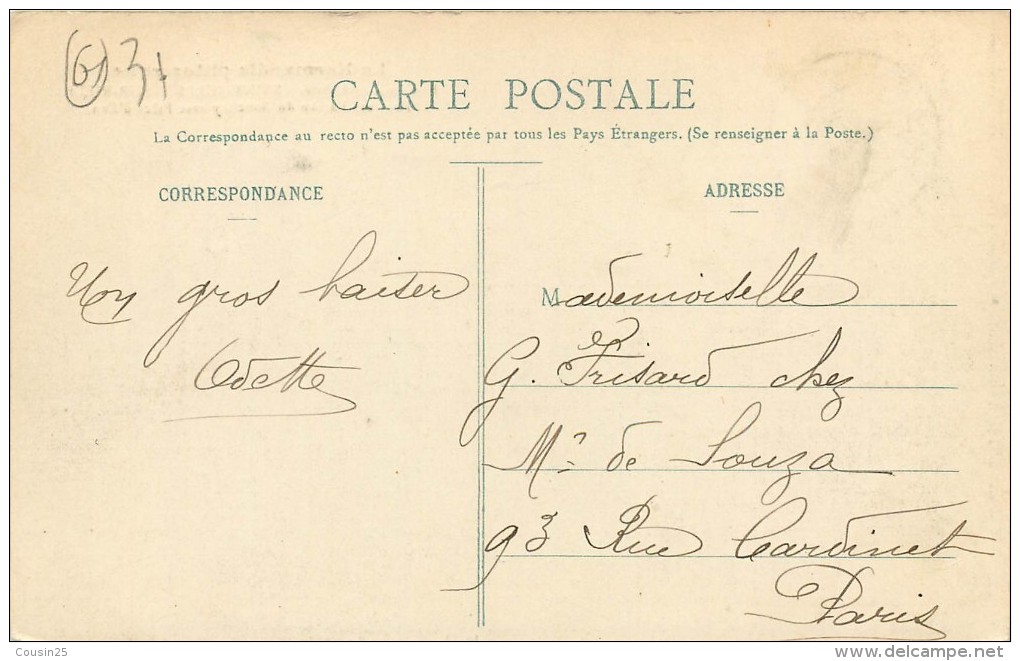 61 31
CARTE POSTALE
La Correspondance au recto n'est pas acceptée par tous les Pays Étrangers. (Se renseigner à la Poste.)
CORRESPONDANCE
Un gros baiser
Odette
ADRESSE
Mademoiselle
G. Frisard chez
Mr de Souza
93 Rue Cardinet
Paris
Cousin25
www.delcampe.net